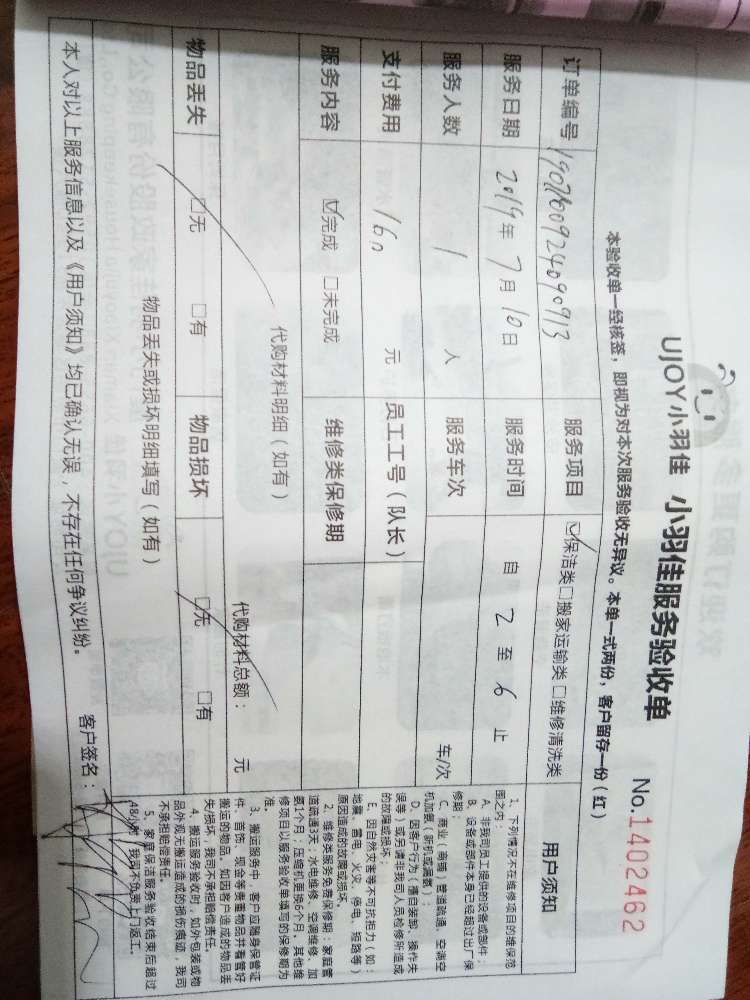 UJOY小羽佳 小羽佳服务验收单 No.1402462
本验收单一经核签，即视为对本次服务验收无异议。本单一式两份，客户留存一份（红）
订单编号 服务项目 ☑保洁类□搬家运输类□维修清洗类
服务日期 2019年7月10日 服务时间 自2至6止
服务人数 1人 服务车次 车/次
支付费用 160元 员工工号（队长）
服务内容 ☑完成 □未完成 维修类保修期
代购材料明细（如有）
代购材料总额： 元
物品丢失 □无 □有 物品损坏 □无 □有
物品丢失或损坏明细填写（如有）
本人对以上服务信息以及《用户须知》均已确认无误，不存在任何争议纠纷。 客户签名：
用户须知
1、下列情况不在维修项目的维保范
围之内：
A、非我司员工提供的设备或部件；
B、设备或部件本身已经超过出厂保
修期；
C、商业（商铺）管道疏通、空调空
机加氨（新机或漏氨）；
D、因客户行为（擅自装卸、操作失
误等）或另请非我司人员检修所造成
的故障或损坏；
E、因自然灾害等不可抗拒力（如：
地震、雷电、火灾、停电、短路等）
原因造成的故障或损坏。
2、维修类服务免费保修期：家庭管
道疏通3天，水电维修、空调维修、加
氨1个月；压缩机更换6个月，其他维
修项目以服务验收单填写的保修期为
准。
3、搬运服务中，客户应随身保管证
件、首饰、现金等贵重物品并看管好
搬运的物品，如因客户造成的物品丢
失/损坏，我司不承担赔偿责任。
4、搬运服务验收时，如外包装或物
品外观无搬运造成的损伤痕迹，我司
不承担赔偿责任。
5、家庭保洁服务验收结束后超过
48小时，我司不负责上门返工。